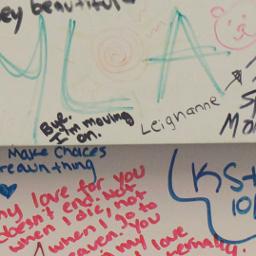 ey beautiful
YLOA
Bye.
I'm moving
on.
Leighanne
Make Choices
own thing
my love for you
doesn't end. not
when I die, not
when I go to
heaven. You
my love
eternally.
KS+
10